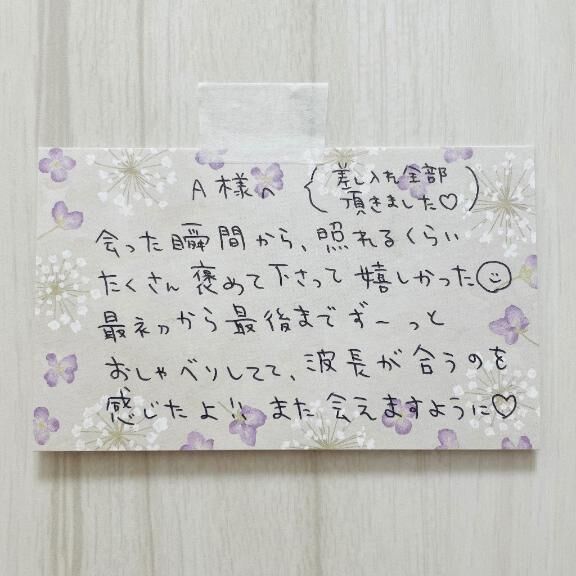 A様へ
(差し入れ全部
頂きました♡)
会った瞬間から、照れるくらい
たくさん褒めて下さって嬉しかった☺
最初から最後までず〜っと
おしゃべりしてて、波長が合うのを
感じたよ!! また会えますように♡